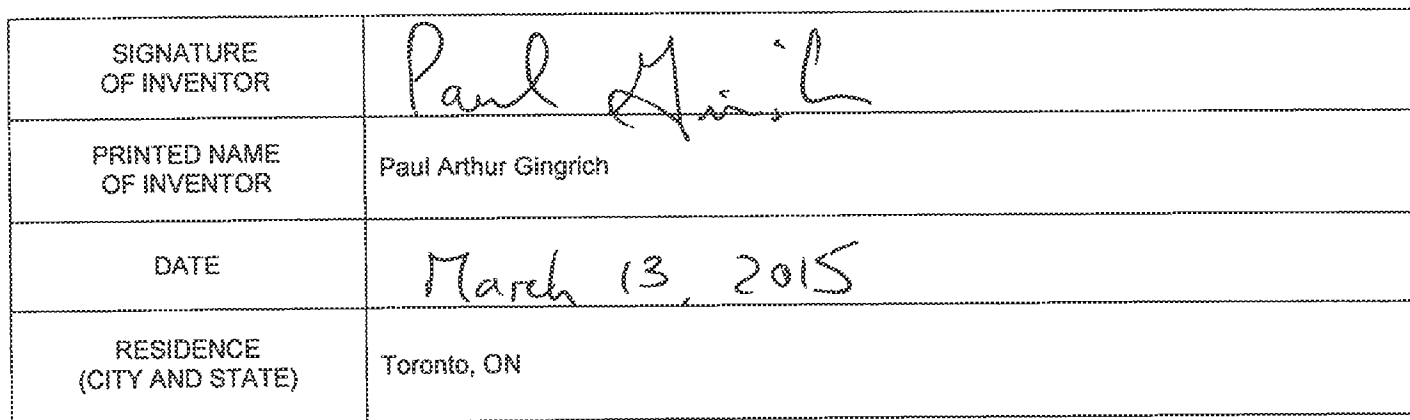 SIGNATURE
OF INVENTOR
Paul
PRINTED NAME
OF INVENTOR
Paul Arthur Gingrich
DATE
March 13, 2015
RESIDENCE
(CITY AND STATE)
Toronto, ON